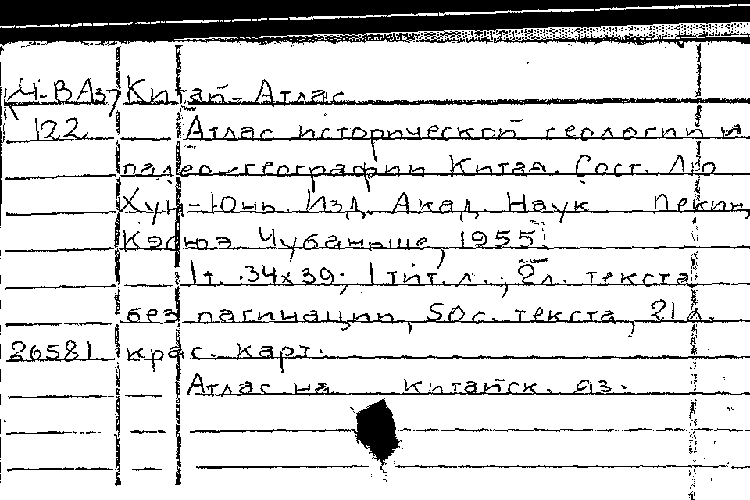 Ч-ВАз Китай-Атлас
122 Атлас исторической геологии и
палео-географии Китая. Сост. Лю
Хун-Юнь. Изд. Акад. Наук Пекин,
Кэсюэ Чубаньше, 1955
1т. 34х39; 1 тит. л., 2л. текста
без пагинации, 50с. текста, 21л.
26581 крас. карт.
Атлас на китайск. яз.